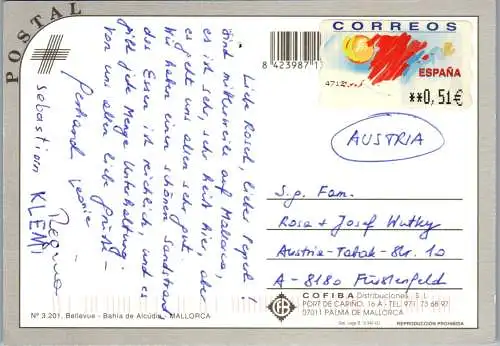 POSTAL
CORREOS
ESPAÑA
**0,51€
8 423987 1
AUSTRIA
Liebe Rosal, lieber Pepsch!
Sind mittlerweile auf Mallorca,
es ist sehr, sehr heiß hier, aber
es geht uns allen sehr gut.
Wir haben einen schönen Sandstrand,
das Essen ist reichlich und es
gibt jede Menge Unterhaltung.
Von uns allen liebe Grüße –
Gerhard Leonie
Regina
Sebastian KLEMM
S.g. Fam.
Rosa + Josef Wutky
Austria-Tabak-Str. 10
A-8180 Fürstenfeld
COFIBA Distribuciones, S.L.
PORT DE CARIÑO, 16 A - TEL. 971 73 68 97
07011 PALMA DE MALLORCA
Nº 3.201, Bellevue - Bahia de Alcúdia, MALLORCA
REPRODUCCIÓN PROHIBIDA